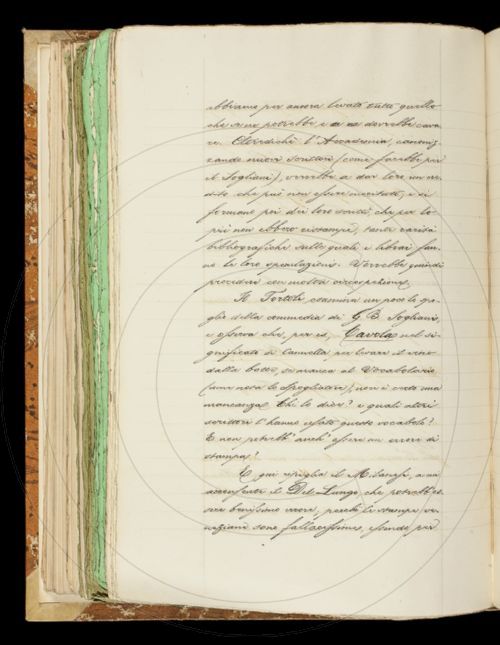 abbiamo per ancora levato tutto quello
che se ne potrebbe e se ne dovrebbe cava
re. Oltredichè l'Accademia, canoniz
zando nuovi scrittori (come farebbe per
il Sogliani), verrebbe a dar loro un cre
dito che può non essere meritato; e si
formano poi di loro scritti, che per lo
più non ebbero ristampe, tante rarità
bibliografiche sulle quali i librai fan
no le loro speculazioni. Vorrebbe quindi
procedere con molta circospezione.
Il Tortoli, esamina un poco lo spo
glio della commedia di G. B. Sogliani,
e osserva che, per es., Cavola nel si
gnificato di Cannella per levare il vino
dalla botte, se manca al Vocabolario
(come nota lo spogliatore), non è certo una
mancanza. Chi lo dice? e quali altri
scrittori l'hanno usato questo vocabolo?
E non potrebb'anch'essere un errore di
stampa?
E qui ripiglia il Milanesi, a cui
acconsente il Del Lungo, che potrebb'es
sere benissimo errore, perchè le stampe ve
neziane sono fallacissime, essendo per